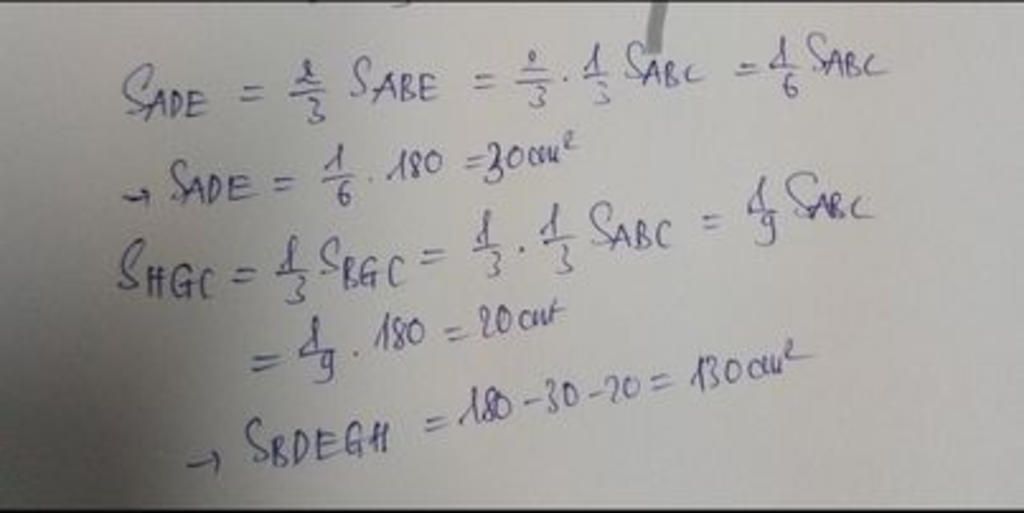 S_ADE = 2/3 S_ABE = 2/3 . 1/3 S_ABC = 1/6 S_ABC
→ S_ADE = 1/6 . 180 = 30cm²
S_HGC = 1/3 S_BGC = 1/3 . 1/3 S_ABC = 1/9 S_ABC
= 1/9 . 180 = 20cm²
→ S_BDEGH = 180 - 30 - 20 = 130cm²